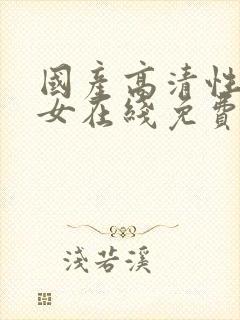 國產高清性
女在綫免費
淺若溪